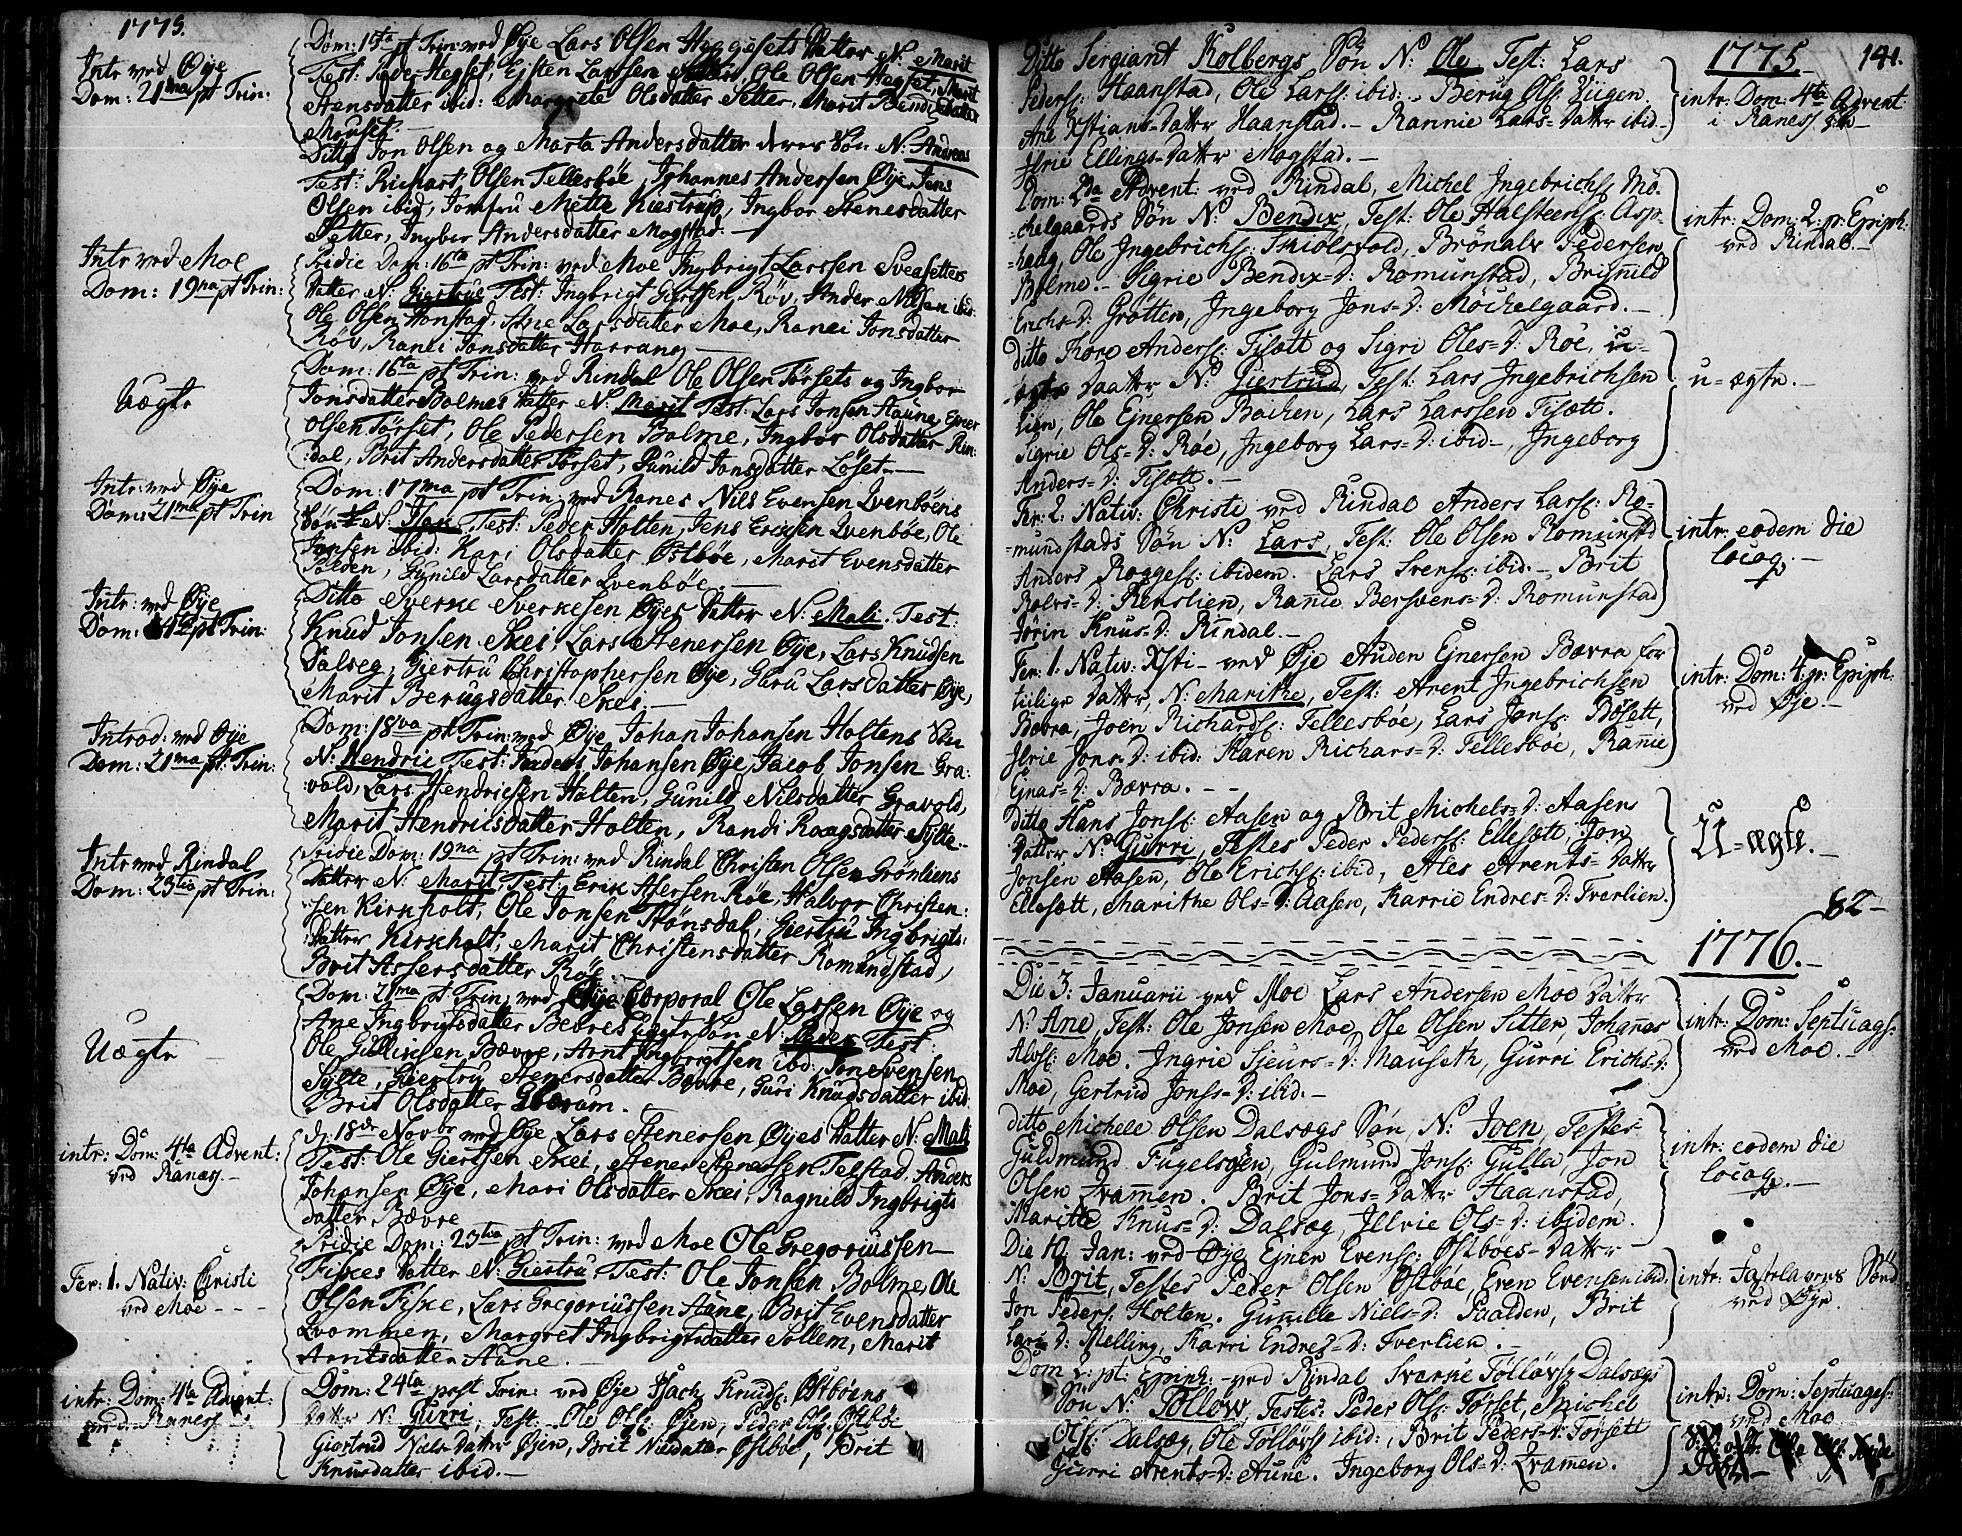 1775.
Intr: ved Øye
Dom: 21ma pt Trin:
Dom: 15ta pt Trin: ved Øye Lars Olsen Heggesets Datter N: Marit
Test: Peder Hegset, Ejsten Larssen Setter, Ole Olsen Hegset, Marit
Stensdatter ibid: Margrete Olsdatter Setter, Marit Bendixdatter
Mouset.
Ditto Jon Olsen og Marta Andersdatter deres Søn N: Andreas
Test: Richart Olsen Tellesbøe, Johannes Andersen Øye, Jens
Olsen ibid, Jomfru Mette Niestrup, Ingbor Stenesdatter
Setter, Ingbor Andersdatter Mogstad.
Intr ved Moe
Dom: 19na pt Trin:
Pridie Dom: 16ta pt Trin: ved Moe Ingbrigt Larssen Sveasetters
Datter N. Giertrue Test: Ingbrigt Giertsen Røv, Ander Nilsen ibid:
Ole Olsen Honstad, Ane Larsdatter Moe, Ranei Jonsdatter
Røv, Ranei Jonsdatter Harrang
Uægte
Dom: 16ta pt Trin: ved Rindal Ole Olsen Tørsets og Ingbor
Jonsdatter Bolmes Datter N: Marit Test: Lars Jonsen Aaune, Ejner
Olsen Tørset, Ole Pedersen Bolme, Ingbor Olsdatter Rin:
dal, Brit Andersdatter Tørset, Gunild Jonsdatter Løset.
Intr: ved Øye
Dom: 21ma pt Trin
Dom: 17ma pt Trin ved Ranes Nils Evensen Qvenbøens
Søn N: Test: Peder Holten, Jens Ericksen Qvenbøe, Ole
Jonsen ibid: Kari Olsdatter Østbøe, Marit Evensdatter
Polden, Gunild Larsdatter Qvenbøe
Intr: ved Øye
Dom: pt Trin:
Ditto Sverke Sverkesen Øyes Datter N: Mali. Test:
Knud Jonsen Skei, Lars Stenersen Øye, Lars Knudsen
Dalseg, Giertru Christophersen Øye, Guru Larsdatter Øye,
Marit Berugsdatter Skei
Introd: ved Øye
Dom: 21ma pt Trin:
Dom: 18va pt Trin: ved Øye Johan Johansen Holtens Søn
N: Hendric Test: Anders Johansen Øye, Jacob Jonsen Gra:
vold, Lars Hendricsen Holten, Gunild Nilsdatter Gravold,
Marit Hendricsdatter Holten, Randi Roaggsdatter Sylte.
Intr ved Rindal
Dom: 23tia pt Trin:
Pridie Dom: 19na pt Trin: ved Rindal Christen Olsen Grönliens
Datter N: Marit, Test: Erik Assersen Røe, Halvor Christen:
sen Kirkholt, Ole Jonsen Trönsdal, Giertru Ingbrigts:
datter Kirkholt, Marit Christensdatter Romundstad,
Brit Assersdatter Röe.
Uægte
Dom: 21ma pt Trin: ved Øye Corporal Ole Larssen Øye og
Ane Ingbrigtsdatter Bevres N: Peder Test:
Ole Bævre, Arnt Ingbrigtsen ibid: Jon Evensen
Sylte, Giertru Stenersdatter Bevre, Guri Knudsdatter ibid:
Brit Olsdatter
intr: Dom: 4ta Advent:
ved Ranæs.
D: 18de Novbr ved Øye Lars Stenersen Øyes Datter N: Mali
Test: Ole Giertsen Skei, Stener Stenersen Telstad, Anders
Johansen Øye, Mari Olsdatter Skei, Ragnild Ingbrigts
datter Bævre
Fer: 1. Nativ: Christi
ved Moe
Pridie Dom: 23tia pt Trin: ved Moe Ole Gregoriussen
Fiskes Datter N: Giertru, Test: Ole Jonsen Bolme, Ole
Olsen Fiske, Lars Gregoriussen Aune, Brit Evensdatter
Qvammen, Margret Ingbrigtsdatter Sollem, Marit
Arntsdatter Aune.
intr: Dom: 4ta Advent:
ved Raness
Dom: 24ta post Trin: ved Øye Isach Knuds: Østbøens
Datr N: Gurri, Test: Ole Ols: Øyen, Peder Ols: Østbø
Giertrud Niels Datter Øyen, Brit Nilsdatter Østbøe, Brit
Knusdatter ibid.
1775
141.
Ditto Sergiant Kolbergs Søn N: Ole Test: Lars
Peders: Haanstad, Ole Larss: ibid:, Berug Ols: Viigen
Ane Xstians=Dattr Haanstad. Rannie Lars=Dattr ibid
Ellings=Dattr Mogstad.
intr: Dom: 4ta Advent:
i Raness
Dom: 2da Advent: ved Rindal, Michel Ingebrichs: Mö:
=chelgaards Søn N: Bendix, Test: Ole Halsteens: Asp=
=haug, Ole Ingebrichs: Brönald Pedersen
Bolme. Sigrie Bendix=D: Romunstad, Brinild
Erichs=D: Grötten, Ingeborg Jons=D: Mochelgaard.
intr: Dom: 2. p: Epiph:
ved Rindal.
ditto Tore Anderss: Tisætt og Sigri Oles=D: Roe, u=
ægte Daatter N: Giertrud, Test: Lars Ingebrichsen
Lien, Ole Ejnersen Bachen, Lars Larssen Tisætt.
Sigrie Ols=D: Roe, Ingeborg Lars=D: ibid, Ingeborg
Anders=D: Tisætt.
u=ægte.
Fer: 2. Nativ: Christi ved Rindal Anders Larss: Ro=
=mundstads Søn N: Lars, Test: Ole Olsen Romunstad
Anders Roggess: ibidem. Lars Svens: ibid., Brit
Rolvs=D: Renslien, Ranie Bersvens=D: Romunstad
Jörin Knus=D: Rindal.
intr: eodem die
locoq.
Fer: 1. Nativ: Xsti ved Øje Auden Ejnersen Bævra for
tiilige Datter, N: Marithe, Test: Arent Ingebrichsen
Bævra, Joen Richards: Tellesbøe, Lars Jons: Bösett,
Jons=D: ibid: Karen Richars=D: Tellesbøe, Ranie
Ejnas=D: Bævra.
intr: Dom: 4. p: Epiph:
ved Øje.
ditto Hans Jons: Aasen og Brit Michels=D: Aasens
Datter N: Gurri, Testes Peder Peders: Ellesætt, Jon
Jonsen Aasen, Ole Erichs: ibid, Ales Arents=Datter
Ellesætt, Marithe Ols=D: Aasen, Karrie Endres=D: Tverlien.
U=ægte.
82
1776.
Die 3: Januarii ved Moe Lars Andersen Moe Datter
N: Ane, Test: Ole Jonsen Moe, Ole Olsen Sitter, Johannes
Moe. Ingrie Sieurs=D: Mauseth, Gurri Erichs=D:
Moe, Gertrud Jons=D: ibid.
intr: Dom: Septuags:
ved Moe.
ditto Michele Olsen Dalsægs Søn, N: Joen, Testes
Guldmund Fugelsøen, Gulmund Jons: Gulla, Jon
Olsen Qvamen. Brit Jons=Dattr Haanstad,
Maritte Knus=D: Dalsæg, Ols=D: ibidem.
intr: eodem die
locoq.
Die 10 Jan: ved Øye Ejner Evens: Østbøes=Datter
N: Brit, Testes Peder Olsen Østbøe, Even Evensen ibid.
Jon Peders: Holten. Gunille Niels=D: Paalden, Brit
Lars=D: Melling, Karri Endres=D: Tverlien.
intr: Fastelavens Sönd:
ved Øye.
Dom 2. pt: Epiph: ved Rindal Sverke Tölløvs: Dalsægs
Søn N: Töllow, Testes: Peder Ols: Tørset, Michel
Ols: Dalsæg, Ole Tölløvs: ibid:, Brit Peders=D: Tørsett
Gurri Arents=D: Aune. Ingeborg Ols=D: Qvamen.
intr: Dom: Septuages:
ved Moe